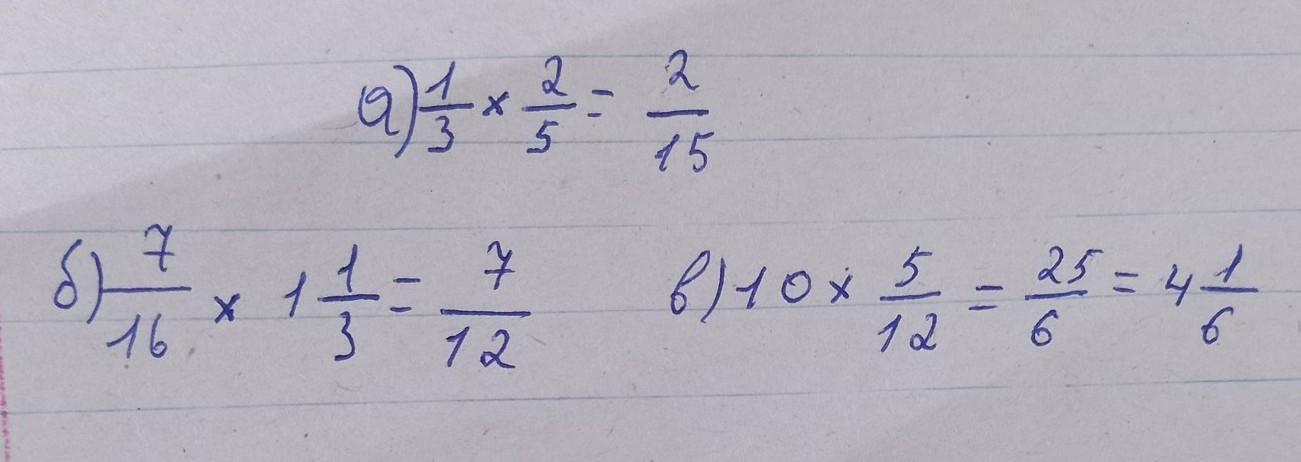 а) 1/3 × 2/5 = 2/15
б) 7/16 × 1 1/3 = 7/12
в) 10 × 5/12 = 25/6 = 4 1/6